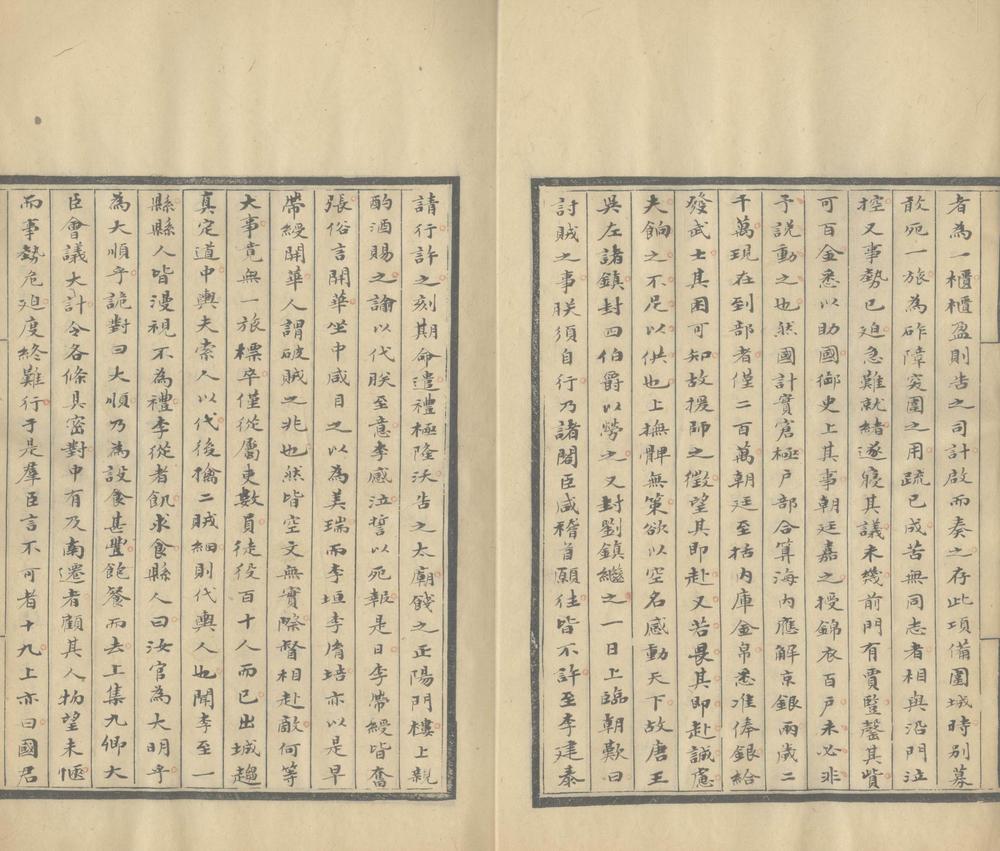 者為一櫃櫃盈則告之司計啟而奏之存此項備圍城時別募
敢死一旅為砟障突圍之用疏已成苦無同志者相與沿門泣
控又事勢已迫急難就緒遂寢其議未幾前門有賈瞖罄其貲
可百金悉以助國御史上其事朝廷嘉之授錦衣百戶未必非
予說動之也然國計實窘極戶部合算海內應解京銀兩歲二
千萬現在到部者僅二百萬朝廷至括內庫金帛悉准俸銀給
發武士其困可知故援師之徵望其即赴又若畏其即赴誠慮
夫餉之不足以供也上撫髀無策欲以空名感動天下故唐王
吳左諸鎮封四伯爵以勞之又封劉鎮繼之一日上臨朝歎曰
討賊之事朕須自行乃諸閣臣咸稽首願往皆不許至李建泰
請行許之刻期命遣禮極隆沃告之太廟餞之正陽門樓上親
酌酒賜之諭以代朕至意李感泣誓以死報是日李帶綬皆奮
張俗言開華坐中咸目之以為美瑞而李垣李脩培亦以是早
帶綬開華人謂破賊之兆也然皆空文無實際督相赴敵何等
大事竟無一旅標卒僅從屬吏數員徒役百十人而已出城趨
真定道中輿夫索人以代後擒二賊細則代輿人也聞李至一
縣縣人皆漫視不為禮李從者飢求食縣人曰汝官為大明乎
為大順乎詭對曰大順乃為設食甚豐飽餐而去上集九卿大
臣會議大計令各條具密對中有及南遷者顧其人物望未愜
而事勢危迫度終難行于是羣臣言不可者十九上亦曰國君